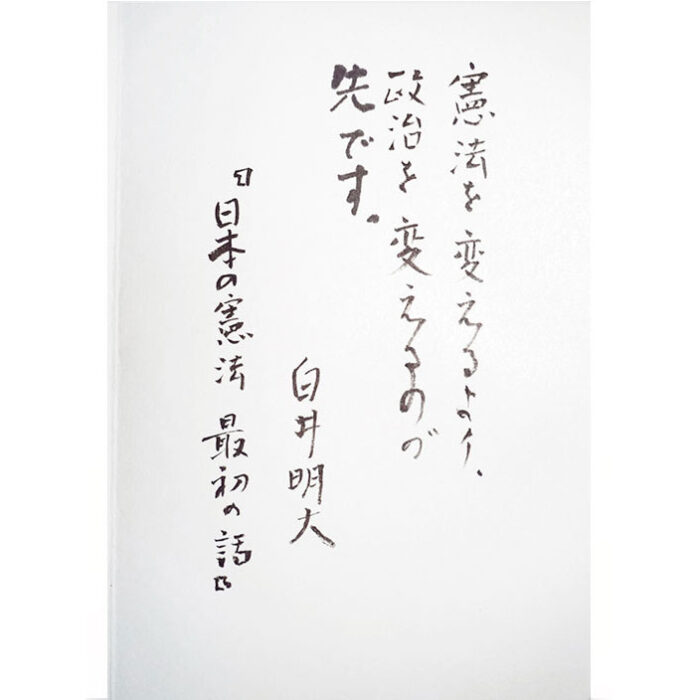 憲法を変えるより、
政治を変えるのが
先です。
白井明大
『日本の憲法 最初の話』